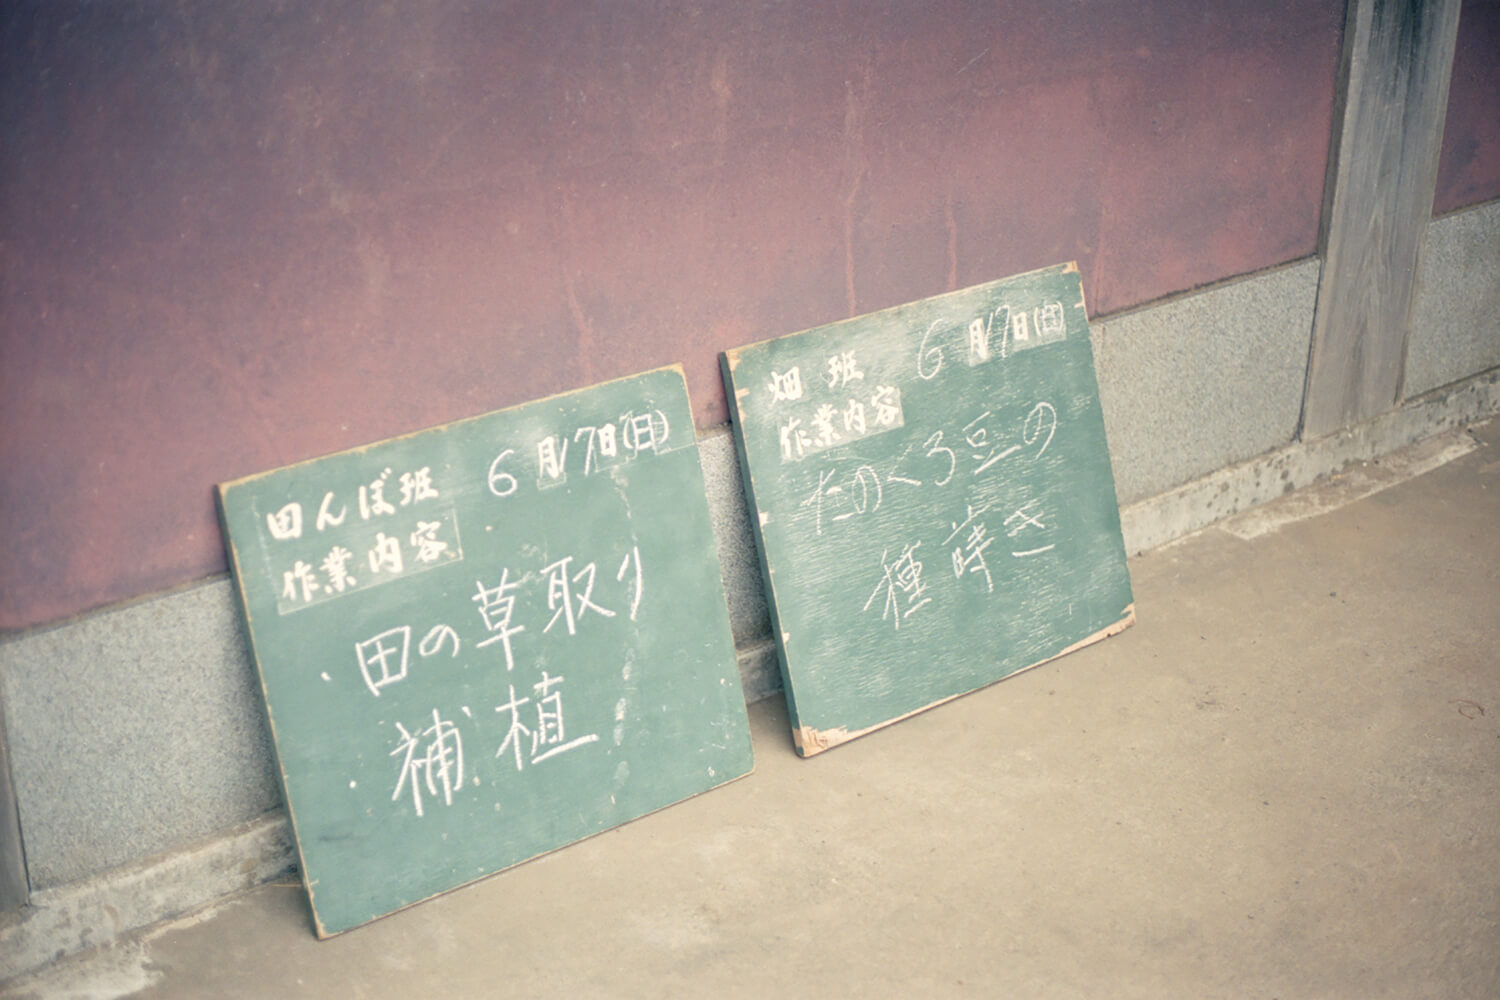 田んぼ班 6月17日(日)
作業内容
・田の草取り
・補植
畑班 6月17日(日)
作業内容
たのくろ豆の
種蒔き